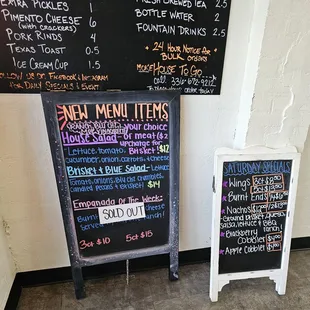 EXTRA PICKLES 1
PIMENTO CHEESE 6
(with crackers)
PORK RINDS 4
TEXAS TOAST .5
ICE CREAM CUP 1.5
FOLLOW US ON FACEBOOK & INSTAGRAM
FOR DAILY SPECIALS & EVENTS
FRESH BREWED TEA 2.5
BOTTLE WATER 2
FOUNTAIN DRINKS 2.5
24 HOUR NOTICE FOR
BULK ORDERS
SMOKEHOUSE TO GO
CALL 336-672-9212
NEW MENU ITEMS
your choice
House Salad- of meat ($2
upcharge for
Lettuce, tomato, Brisket) $12
cucumber, onion, carrots, & cheese
Brisket & Blue Salad-
Lettuce,
Tomato, onions, Blu chz crumbles,
candied pecans & Brisket $14
Empanada Of The Week:
SOLD OUT
Served
3ct $10 5ct $15
SATURDAY SPECIALS
Wings
Burnt Ends
Nachos
Ground Brisket, queso,
salsa, lettuce & BBQ
Blackberry
Cobbler
Apple Cobbler